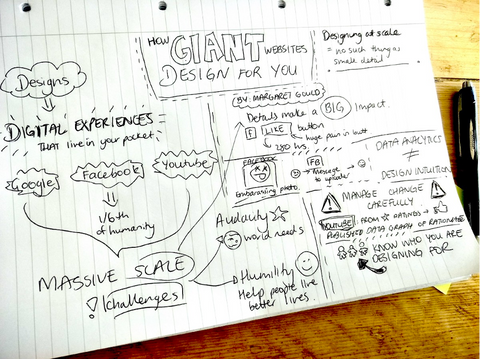 HOW GIANT WEBSITES
DESIGN FOR YOU
BY: MARGARET GOULD
Designs
DIGITAL EXPERIENCES =
THAT live in your pocket.
Google
Facebook
Youtube
1/6th
of humanity
MASSIVE SCALE
! challenges
Details make a BIG Impact.
f LIKE button
huge pain in butt
280 hrs.
FACEBOOK
Embarassing photo.
FB
message
to
Audacity
world needs
Humility
Help people live
better lives.
Designing at scale
= no such thing as
small detail
DATA ANALYTICS
≠
DESIGN INTUITION
MANAGE CHANGE
CAREFULLY
YOUTUBE FROM
PUBLISHED DATA GRAPH OF RATIONALE
KNOW WHO YOU ARE
DESIGNING FOR